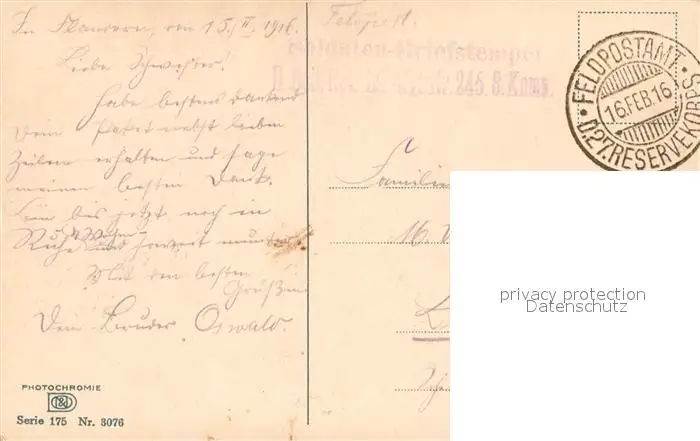 In Flandern, den 15. II. 1916.
Liebe Schwester!
Habe bestens dankend
Dein Paket nebst lieben
Zeilen erhalten und sage
meinen besten Dank.
Bin bis jetzt noch in
Ruhe und soweit munter
Mit den besten
Grüßen
Dein Bruder Oswald.
PHOTOCHROMIE
Serie 175 Nr. 3076
Feldpost.
Soldaten-Briefstempel
245. 8. Komp.
FELDPOSTAMT
16.FEB.16
D.27.RESERVEKORPS
Familie
M.
privacy protection
Datenschutz